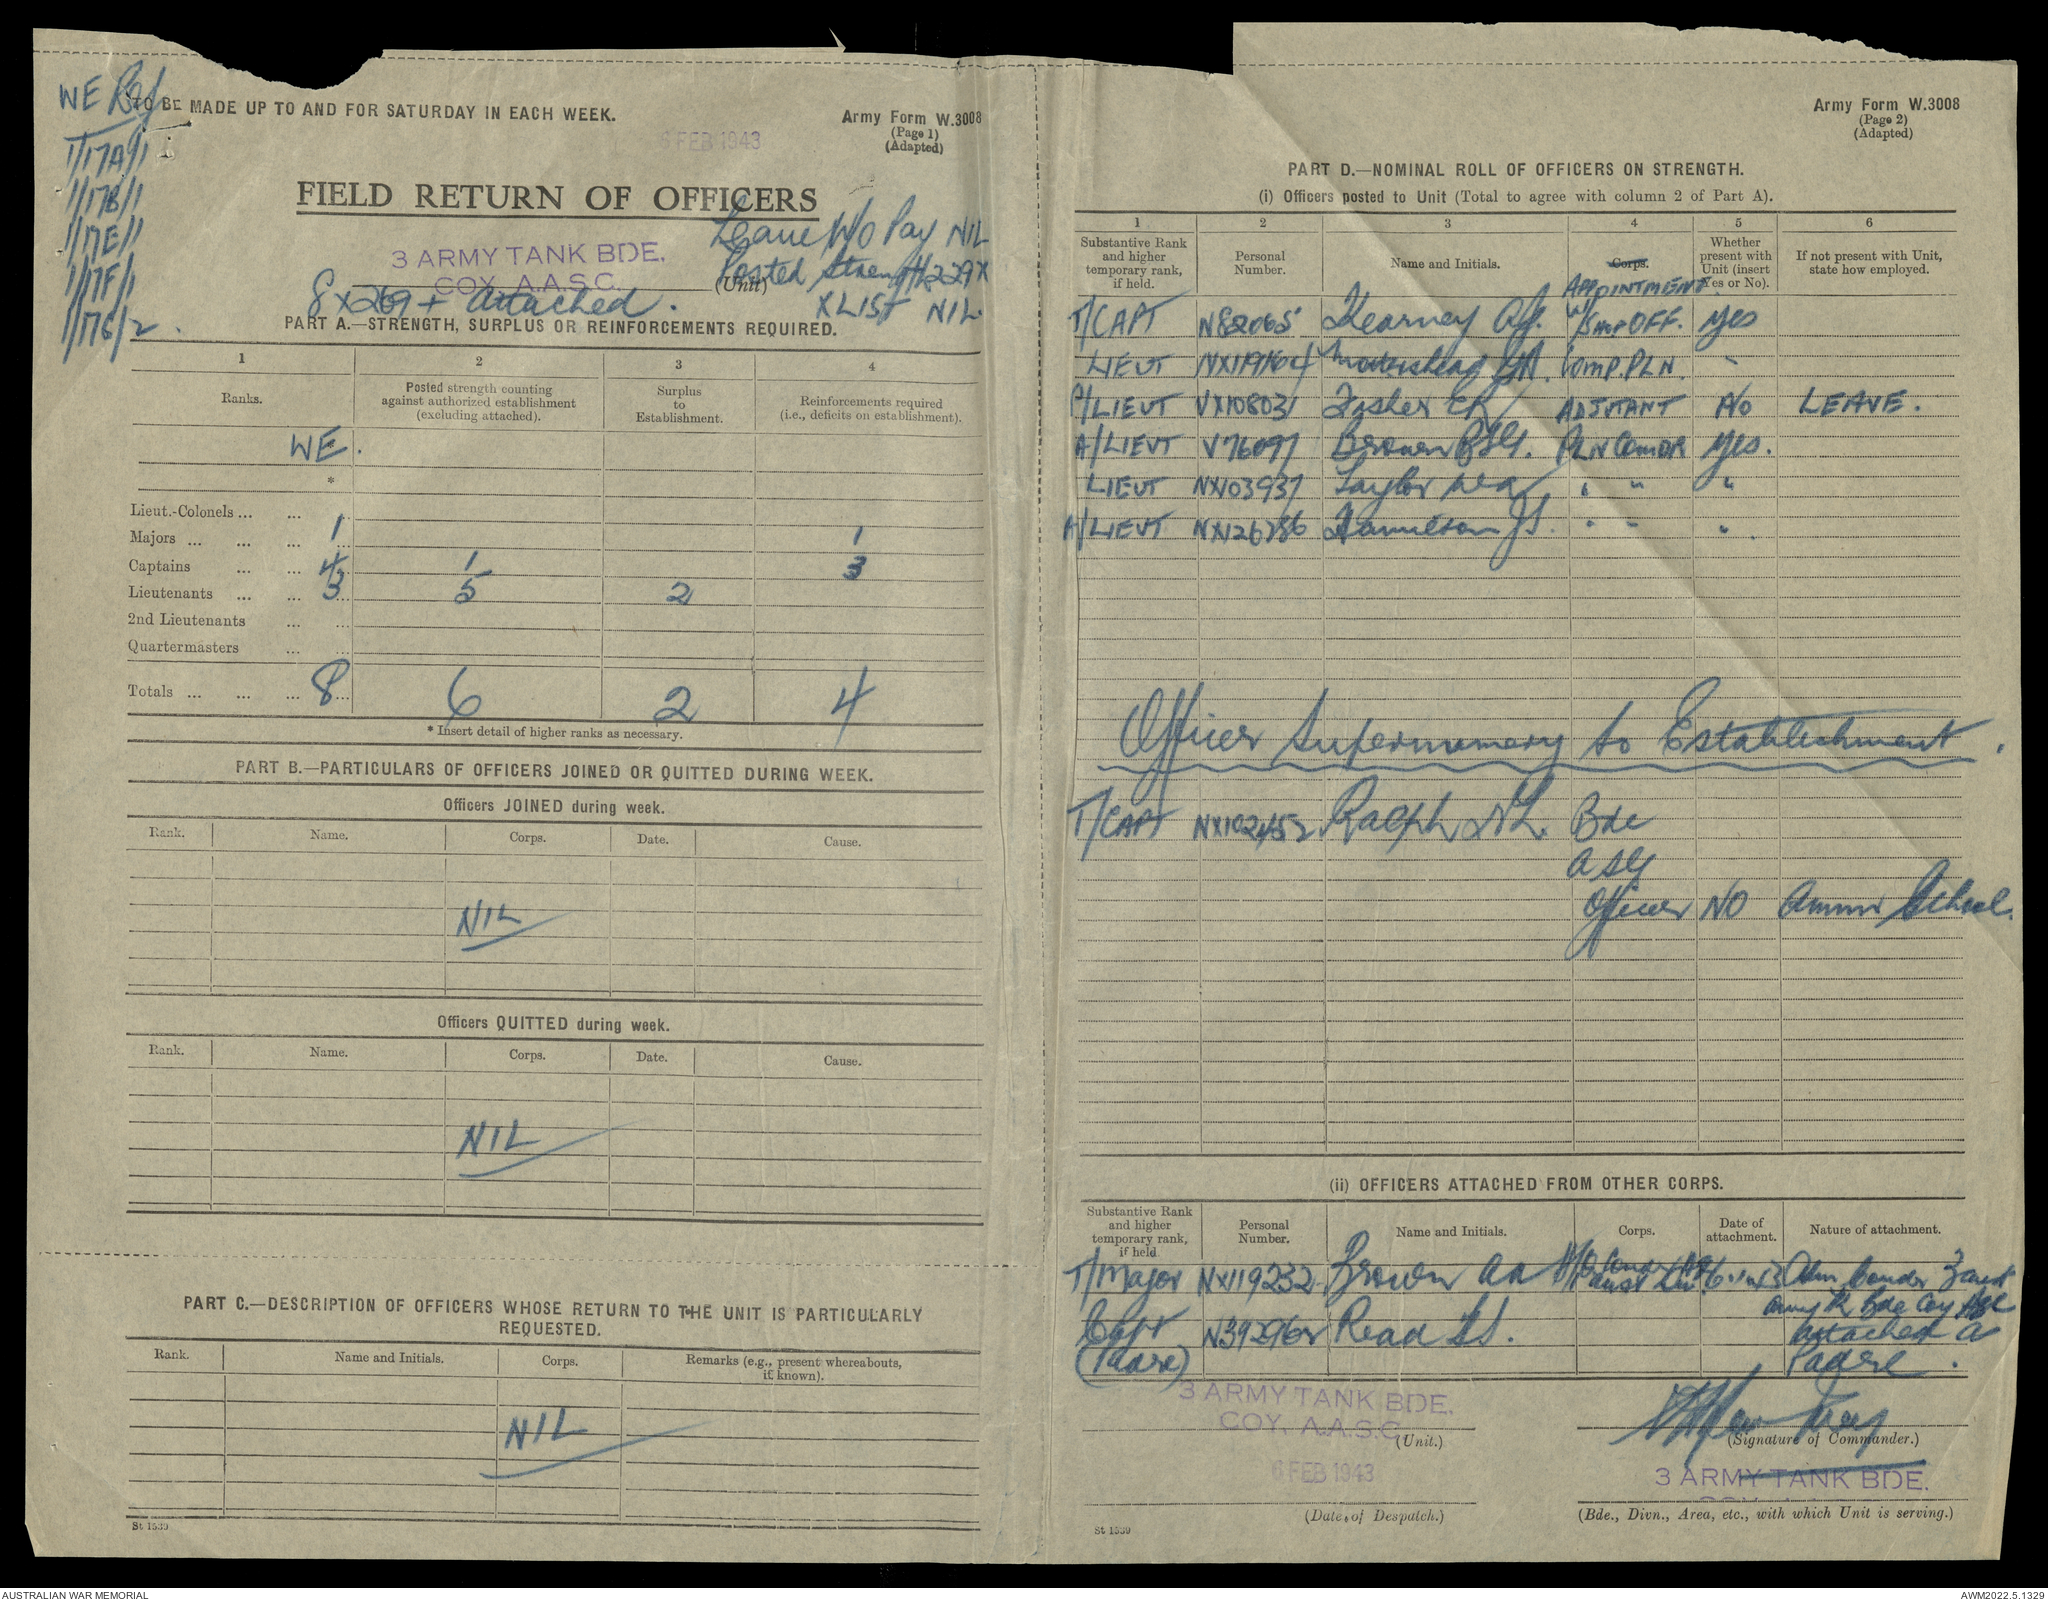 WE Ref
1/17A/1
1/17B/1
1/17E/1
1/17F/1
1/17G/2.
TO BE MADE UP TO AND FOR SATURDAY IN EACH WEEK.
Army Form W.3008
(Page 1)
(Adapted)
6 FEB 1943
FIELD RETURN OF OFFICERS
Leave W/O Pay NIL
3 ARMY TANK BDE.
COY. A.A.S.C.
Posted Strength 229X
(Unit)
8 X 269 + attached.
X LIST NIL.
PART A.—STRENGTH, SURPLUS OR REINFORCEMENTS REQUIRED.
1 2 3 4
Ranks. Posted strength counting against authorized establishment (excluding attached). Surplus to Establishment. Reinforcements required (i.e., deficits on establishment).
WE.
*
Lieut.-Colonels ... ...
Majors ... ... ... 1 1
Captains ... ... 4 1 3
Lieutenants ... ... 3 5 2
2nd Lieutenants ... ...
Quartermasters ... ...
Totals ... ... ... 8 6 2 4
* Insert detail of higher ranks as necessary.
PART B.—PARTICULARS OF OFFICERS JOINED OR QUITTED DURING WEEK.
Officers JOINED during week.
Rank. Name. Corps. Date. Cause.
NIL
Officers QUITTED during week.
Rank. Name. Corps. Date. Cause.
NIL
PART C.—DESCRIPTION OF OFFICERS WHOSE RETURN TO THE UNIT IS PARTICULARLY
REQUESTED.
Rank. Name and Initials. Corps. Remarks (e.g., present whereabouts, if known).
NIL
St 1539
Army Form W.3008
(Page 2)
(Adapted)
PART D.—NOMINAL ROLL OF OFFICERS ON STRENGTH.
(i) Officers posted to Unit (Total to agree with column 2 of Part A).
1 2 3 4 5 6
Substantive Rank and higher temporary rank, if held. Personal Number. Name and Initials. Corps. Whether present with Unit (insert Yes or No). If not present with Unit, state how employed.
APPOINTMENT.
T/CAPT N82065 Kearney W/Shop OFF. Yes
LIEUT Mottershead Comp. PLN. "
LIEUT VX108031 ADJUTANT No LEAVE.
A/LIEUT V76097 Brown PLN Comdr Yes.
LIEUT NX103937 Taylor " " "
A/LIEUT NX126786 Hamilton JS. " " ".
Officer Supernumery to Establishment.
T/CAPT NX102452 Ralph Bde
ASC
Officer NO Ammn School.
(ii) OFFICERS ATTACHED FROM OTHER CORPS.
Substantive Rank and higher temporary rank, if held Personal Number. Name and Initials. Corps. Date of attachment. Nature of attachment.
T/Major NX119232 Brown 3 Aust
Army Tk Bde Coy ASC
Capt N392962 Read attached a
(Padre) Padre.
3 ARMY TANK BDE.
COY. A.A.S.C.
(Unit.)
(Signature of Commander.)
6 FEB 1943
3 ARMY TANK BDE.
(Date of Despatch.)
(Bde., Divn., Area, etc., with which Unit is serving.)
St 1539
AUSTRALIAN WAR MEMORIAL
AWM2022.5.1329